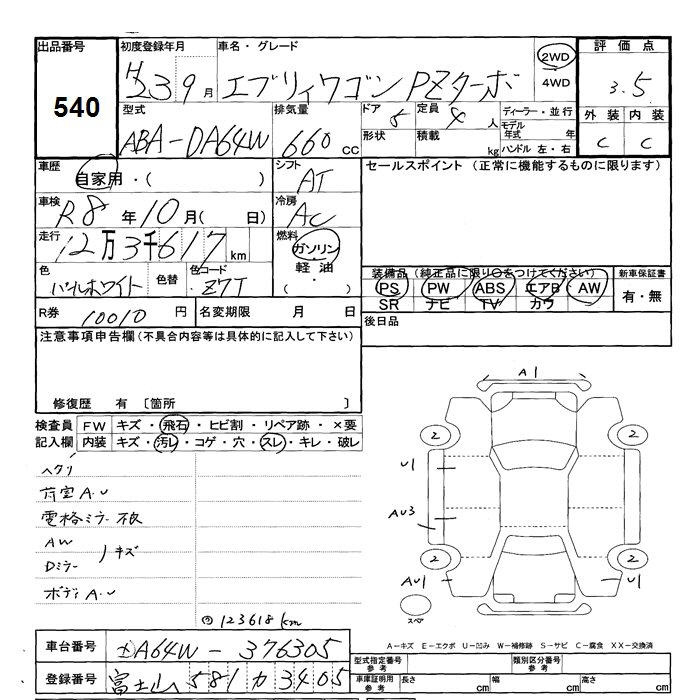 出品番号
540
初度登録年月
H23 9月
車名・グレード
エブリィワゴン PZターボ
2WD
4WD
評価点
3.5
外装 内装
C C
型式
ABA-DA64W
排気量
660 cc
ドア 5
形状
定員 4 人
積載 kg
ディーラー・並行
モデル年式 年
ハンドル 左・右
車歴
自家用・( )
シフト
AT
セールスポイント (正常に機能するものに限ります)
車検
R8年10月( 日)
冷房
AC
走行
12万3千617km
燃料
ガソリン
軽油
( ・ )
色
パールホワイト
色替
色コード
Z7T
装備品 (純正品に限り○をつけてください)
PS PW ABS エアB AW
SR ナビ TV カワ
新車保証書
有・無
R券 10010 円
名変期限 月 日
後日品
注意事項申告欄(不具合内容等は具体的に記入して下さい)
修復歴 有 〔箇所 〕
検査員記入欄
FW キズ・飛石・ヒビ割・リペア跡・×要
内装 キズ・汚レ・コゲ・穴・スレ・キレ・破レ
ヘクリ
荷室A.U
電格ミラー不良
AW
Dミラー
キズ
ボディA.U
123618km
A1
2
2
U1
AU3
2
2
AU1
U1
スペア
A-キズ E-エクボ U-凹み W-補修跡 S-サビ C-腐食 XX-交換済
車台番号
DA64W-376305
登録番号
富士山 581 カ 3405
型式指定番号 参考
類別区分番号 参考
車庫証明用 参考
長さ cm
幅 cm
高さ cm